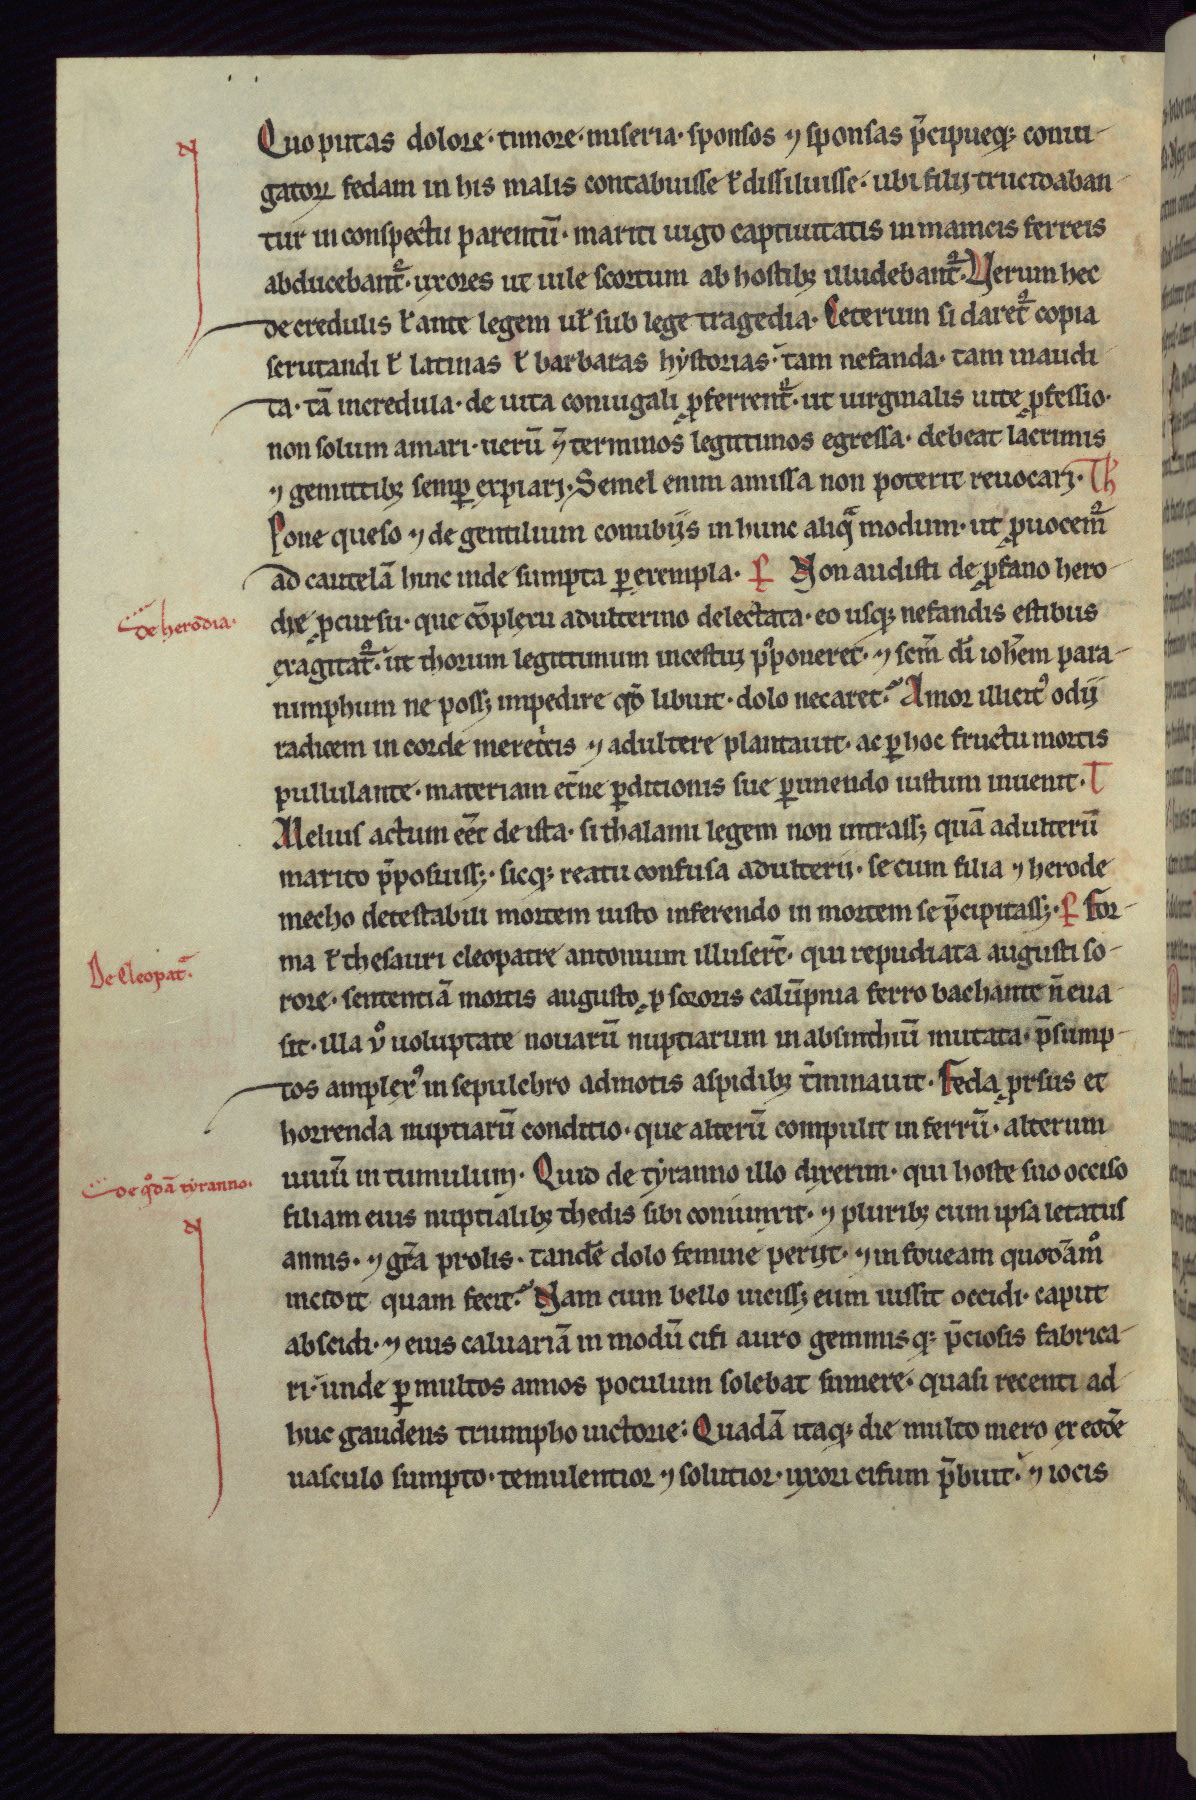 Quo putas dolore· timore· miseria· sponsos ⁊ sponsas p̄cipueq; coniu-
gatoꝝ fedam in his malis contabuisse ł dissiluisse· ubi filij trucidaban-
tur in conspectu parentū· mariti iugo captiuitatis in manicis ferreis
abducebant᷑· uxores ut uile scortum ab hostibꝫ illudebant᷑· Verum hec
de credulis ł ante legem uł sub lege tragedia· Ceterum si daret᷑ copia
scrutandi ł latinas ł barbaras hẏstorias· tam nefanda· tam inaudi
ta· tā incredula· de uita coniugali ꝓferrent᷑· ut uirginalis uite ꝓfessio·
non solum amari· uerū ⁊̄ terminos legittimos egressa· debeat lacrimis
⁊ gemitibꝫ semꝑ expiari· Semel enim amissa non poterit reuocari· Th
Pone queso ⁊ de gentilium conubijs in hunc aliq̄ modum· ut ꝓuocem᷑
ad cautelā hinc inde sumpta ꝑ exempla· ꝑ Non audisti de ꝓfano hero-
die ꝓcursu· que cōplexu adulterino delectata· eo usq; nefandis estibus
exagitat᷑· ut thorum legittimum incestui p̓poneret· ⁊ sc̄m dī ioh̄em para-
nimphum ne possꝫ impedire qd̄ libuit· dolo necaret· Amor illicitꝰ odij
radicem in corde meretricis ⁊ adultere plantauit· ac ꝑ hoc fructu mortis
pullulante· materiam et̄ne ꝑditionis sue ꝑimendo iustum inuenit· T
Melius actum eēt de ista· si thalami legem non intrassꝫ quā adulterū
marito p̄posuissꝫ· sicq; reatu confusa adulterii· se cum filia ⁊ herode
mecho detestabili mortem iusto inferendo in mortem se p̄cipitassꝫ· ꝑ For-
ma ł thesauri cleopatre antonium illuser̄t· qui repudiata augusti so-
rore· sententiā mortis augusto ꝓ sororis calūpnia ferro bachante n̄ eua-
sit· illa v̊ uoluptate nouarū nuptiarum in absinthiū mutata· p̄sump-
tos amplexꝰ in sepulchro admotis aspidibꝫ t̄minauit· Feda ꝓrsus et
horrenda nuptiarū conditio· que alterū compulit in ferrū· alterum
uiuū in tumulum· Quid de tẏranno illo dixerim· qui hoste suo occiso
filiam eius nuptialibꝫ thedis sibi coniunxit· ⁊ pluribꝫ cum ipsa letatus
annis· ⁊ gr̄a prolis· tandē dolo femine perijt· ⁊ in foueam quodāmo
incidit quam fecit· Nam cum bello uicissꝫ eum iussit occidi· caput
abscidi· ⁊ eius caluariā in modū cifi auro gemmisq; p̄ciosis fabrica-
ri· unde ꝑ multos annos poculum solebat sumere· quasi recenti ad
huc gaudens triumpho uictorie· Quadā itaq; die multo mero ex eodē
uasculo sumpto· temulentior ⁊ solutior· uxori cifum p̄buit· ⁊ iocis
de herodia·
De Cleopat̄·
de qͦdā tẏranno·